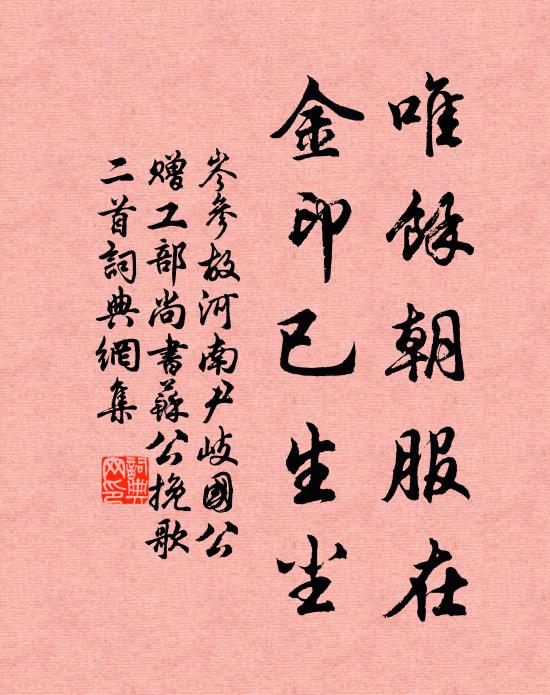 唯餘朝服在
金印已生尘
岑參故河南尹岐國公
贈工部尚書蘇公挽歌
二首詞典網集
詞典網印